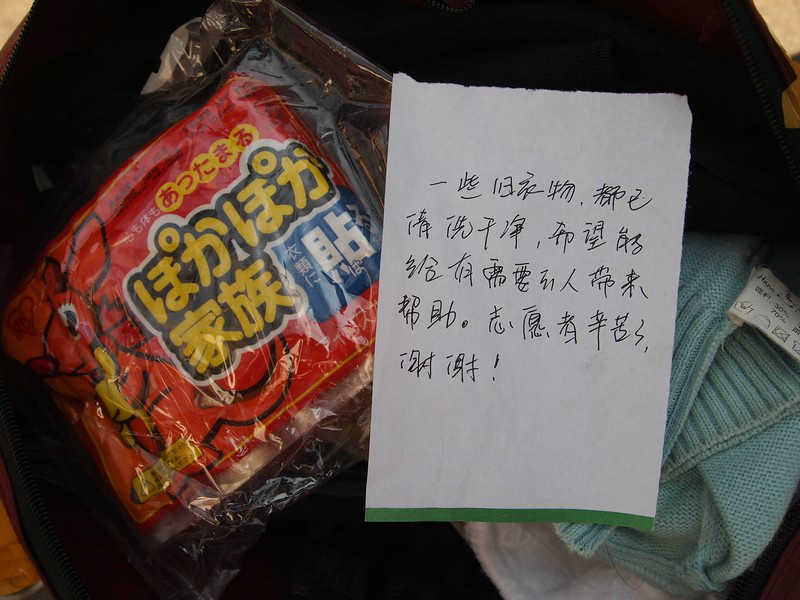 心も体も あったまる
ぽかぽか
家族
衣類に
貼
一些旧衣物，都已
清洗干净，希望能
给有需要的人带来
帮助。志愿者辛苦了，
谢谢！
30%
70%